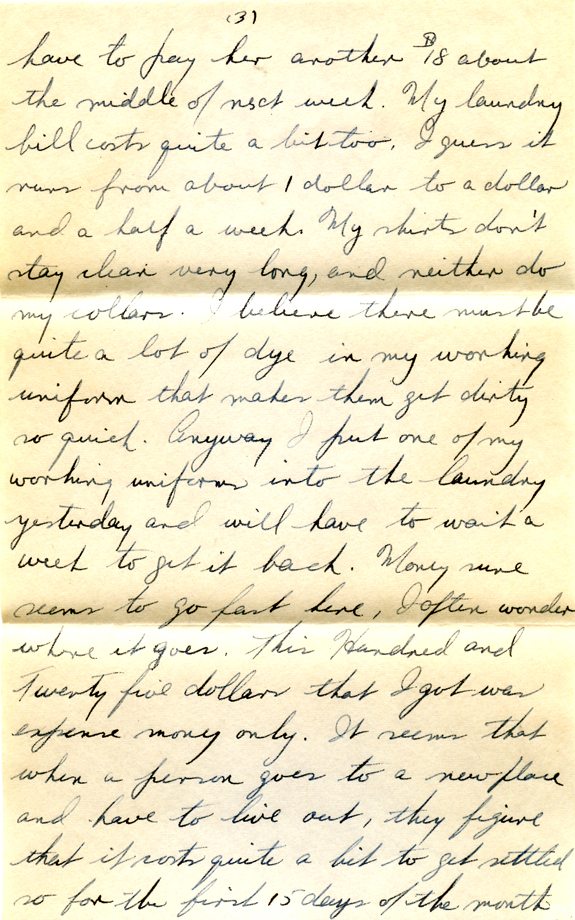 (3)
have to pay her another $18 about
the middle of next week. My laundry
bill costs quite a bit too. I guess it
runs from about 1 dollar to a dollar
and a half a week. My shirts don't
stay clean very long, and neither do
my collars. I believe there must be
quite a lot of dye in my working
uniform that makes them get dirty
so quick. Anyway I put one of my
working uniforms into the laundry
yesterday and will have to wait a
week to get it back. Money sure
seems to go fast here, I often wonder
where it goes. This Hundred and
Twenty five dollars that I got was
expense money only. It seems that
when a person goes to a new place
and have to live out, they figure
that it costs quite a bit to get settled
so for the first 15 days of the month